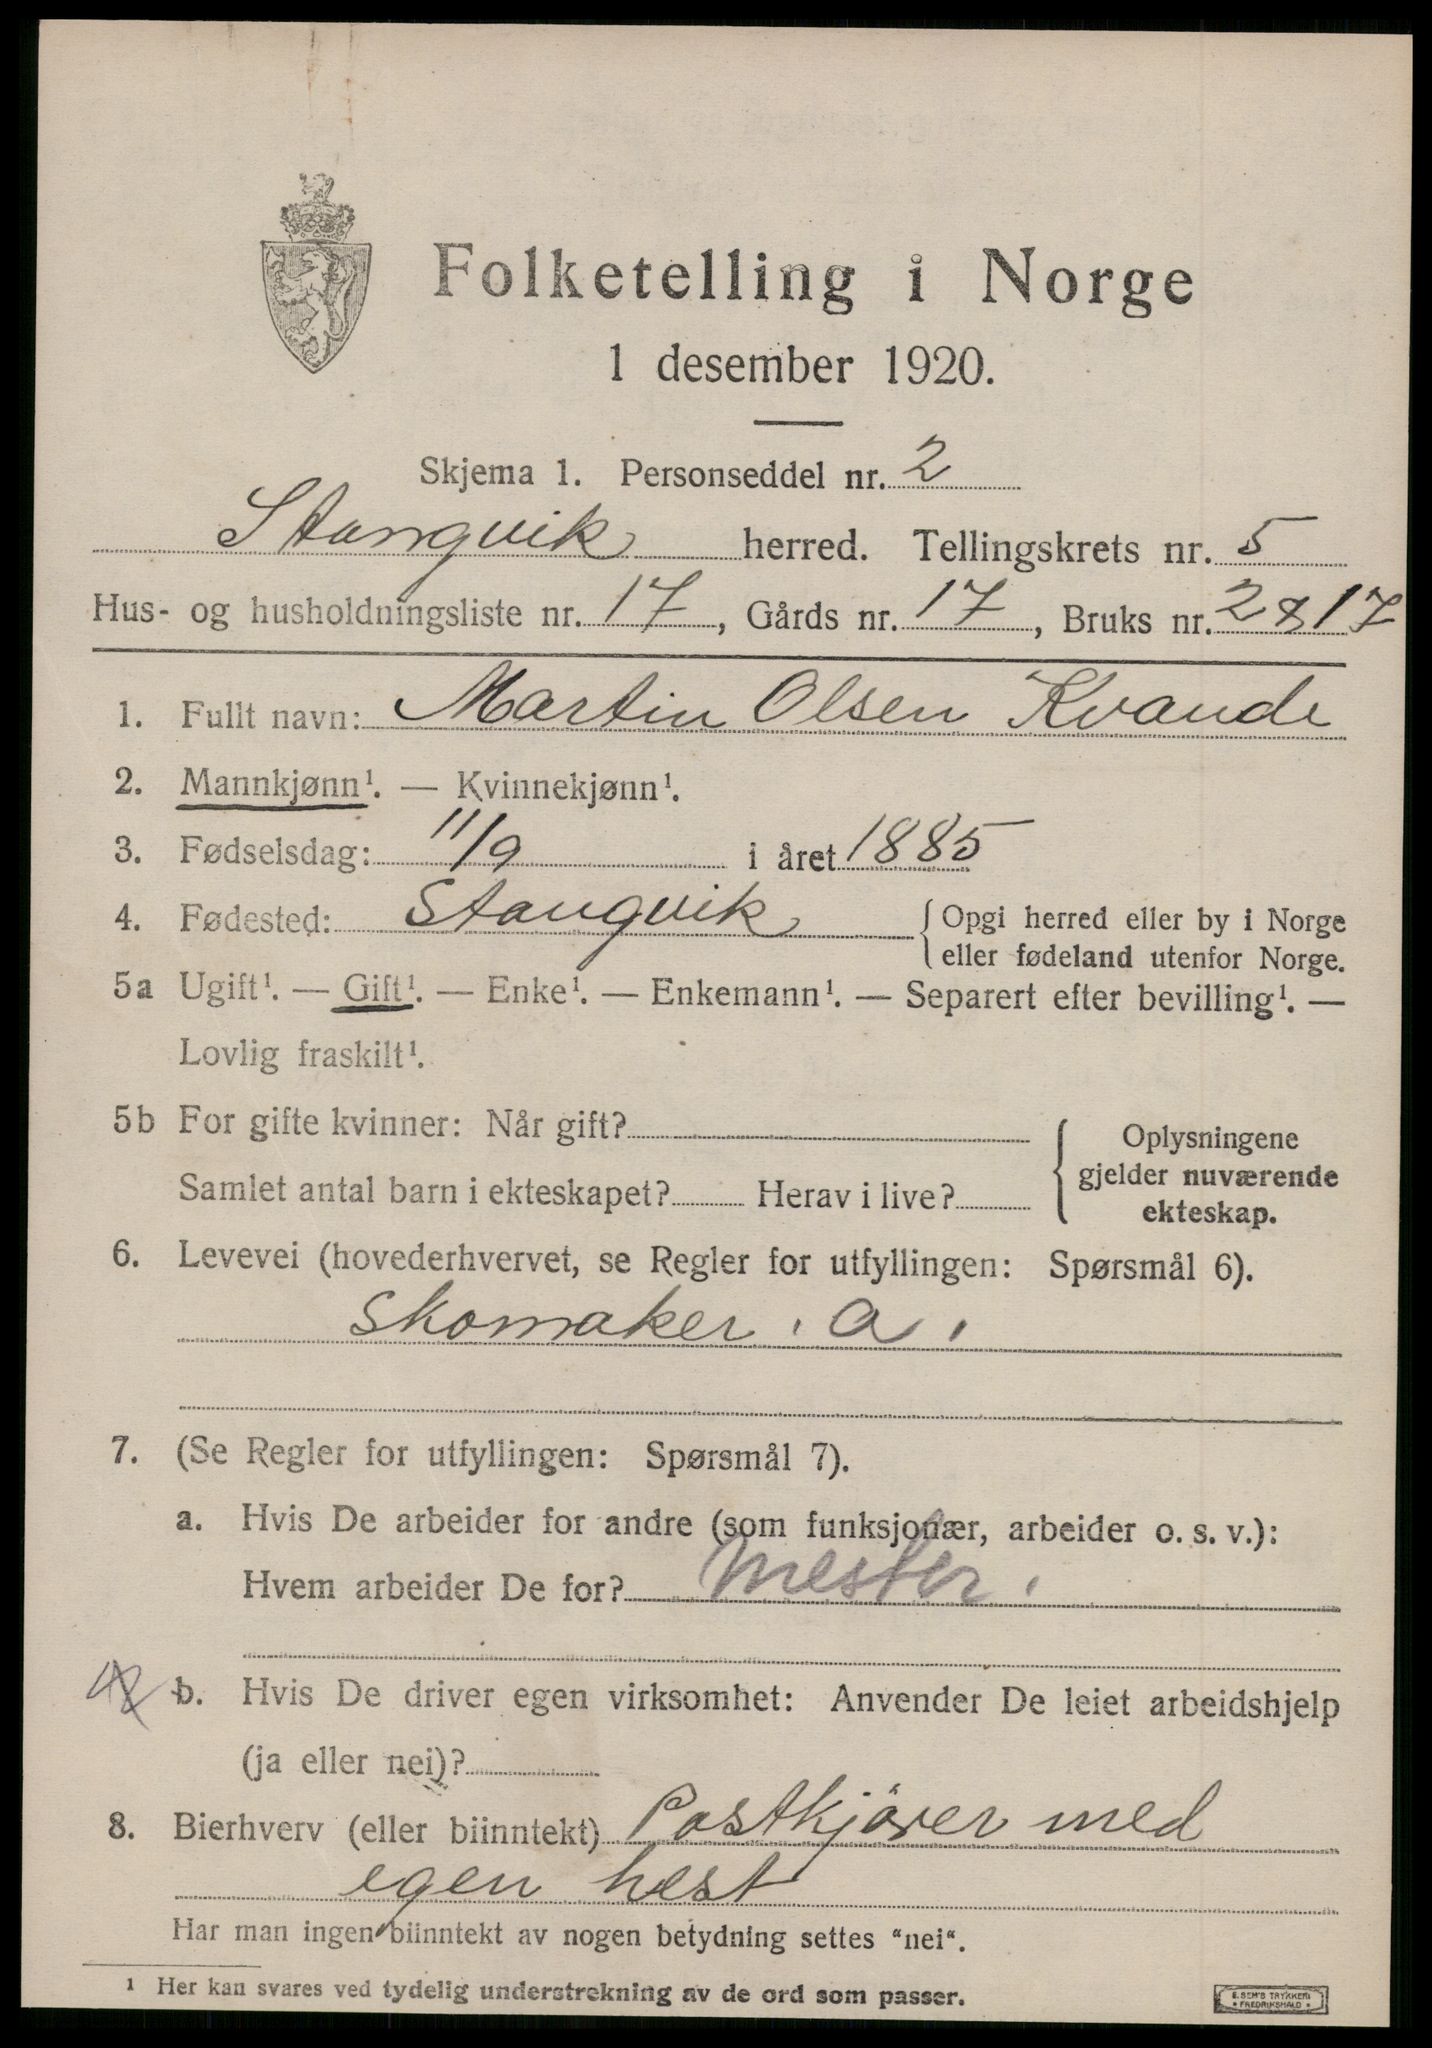 Folketelling i Norge
1 desember 1920.
Skjema 1. Personseddel nr. 2
Stangvik herred. Tellingskrets nr. 5
Hus- og husholdningsliste nr. 17, Gårds nr. 17, Bruks nr. 2 & 17
1. Fullt navn: Martin Olsen Kvande
2. Mannkjønn¹. — Kvinnekjønn¹.
3. Fødselsdag: 11/9 i året 1885
4. Fødested: Stangvik { Opgi herred eller by i Norge
eller fødeland utenfor Norge.
5a Ugift¹. — Gift¹. — Enke¹. — Enkemann¹. — Separert efter bevilling¹. —
Lovlig fraskilt¹.
5b For gifte kvinner: Når gift?
Samlet antal barn i ekteskapet? Herav i live?
Oplysningene
gjelder nuværende
ekteskap.
6. Levevei (hovederhvervet, se Regler for utfyllingen: Spørsmål 6).
Skomaker. a.
7. (Se Regler for utfyllingen: Spørsmål 7).
a. Hvis De arbeider for andre (som funksjonær, arbeider o. s. v.):
Hvem arbeider De for? Mester.
b. Hvis De driver egen virksomhet: Anvender De leiet arbeidshjelp
(ja eller nei)?
8. Bierhverv (eller biinntekt) Postkjører med
egen hest
Har man ingen biinntekt av nogen betydning settes "nei".
¹ Her kan svares ved tydelig understrekning av de ord som passer.
E. SEM'S TRYKKERI
* FREDRIKSHALD *